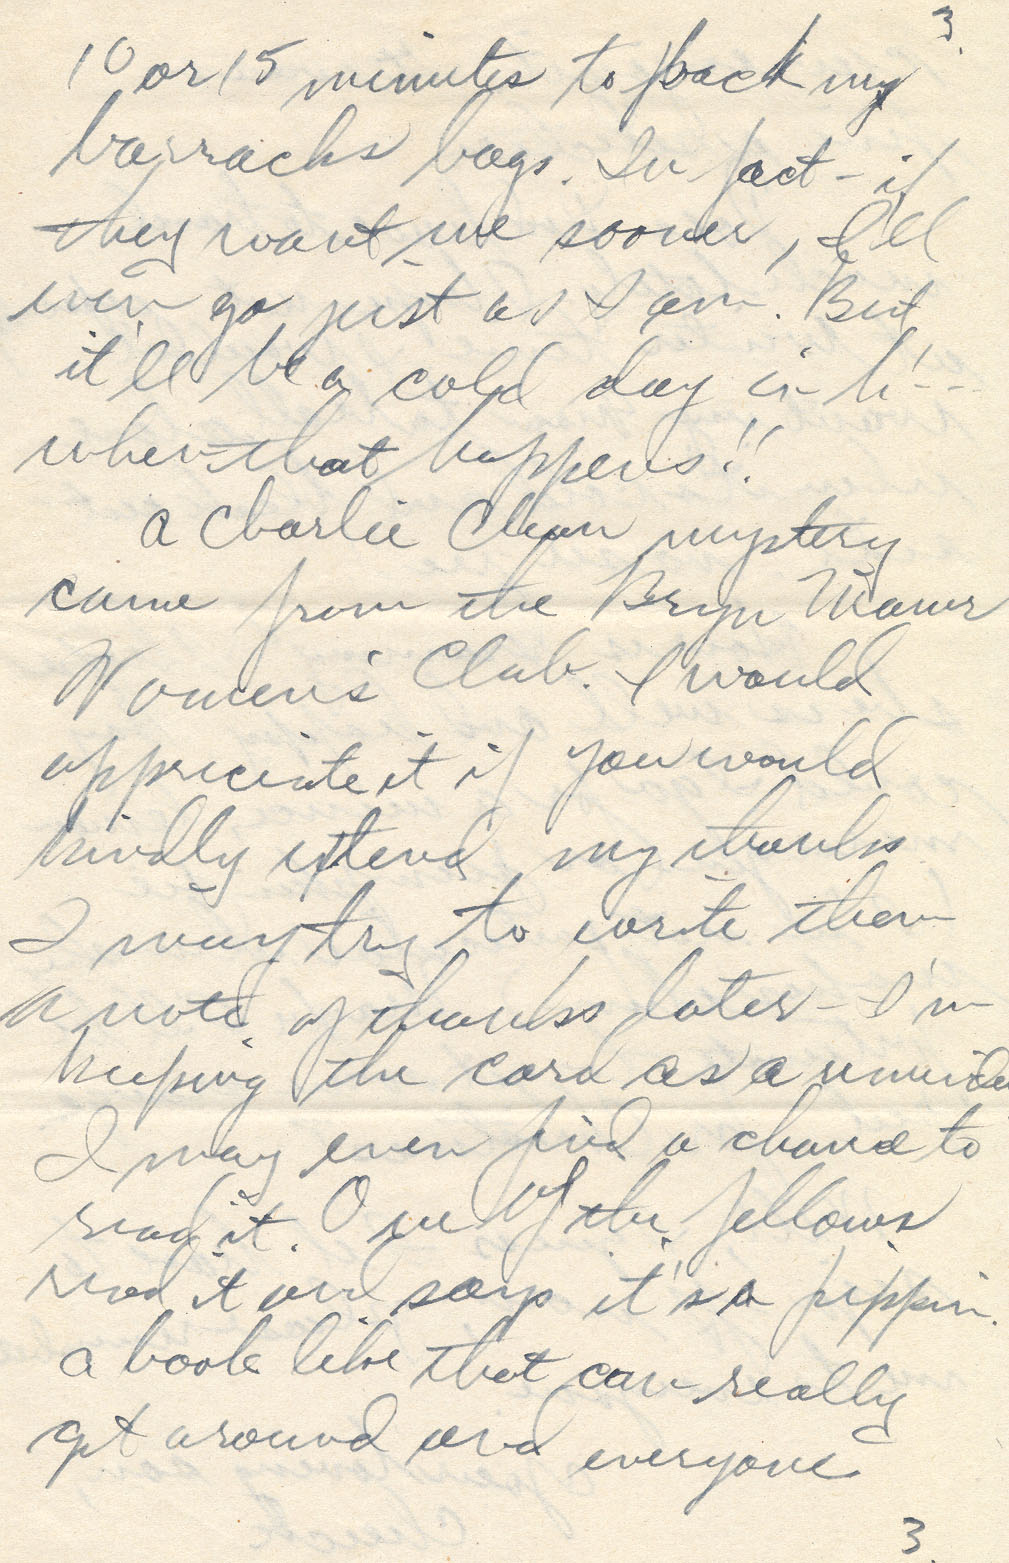 3.
10 or 15 minutes to pack my
barracks bags. In fact - if
they want me sooner, I'll
even go just as I am. But
it'll be a cold day in h--
when that happens!!
A Charlie Chan mystery
came from the Bryn Mawr
Women's Club. I would
appreciate it if you would
kindly extend my thanks
I may try to write them
a note of thanks later - I'm
keeping the card as a reminder
I may even find a chance to
read it. One of the fellows
read it and says it's a pippin.
A book like that can really
get around and everyone
3.